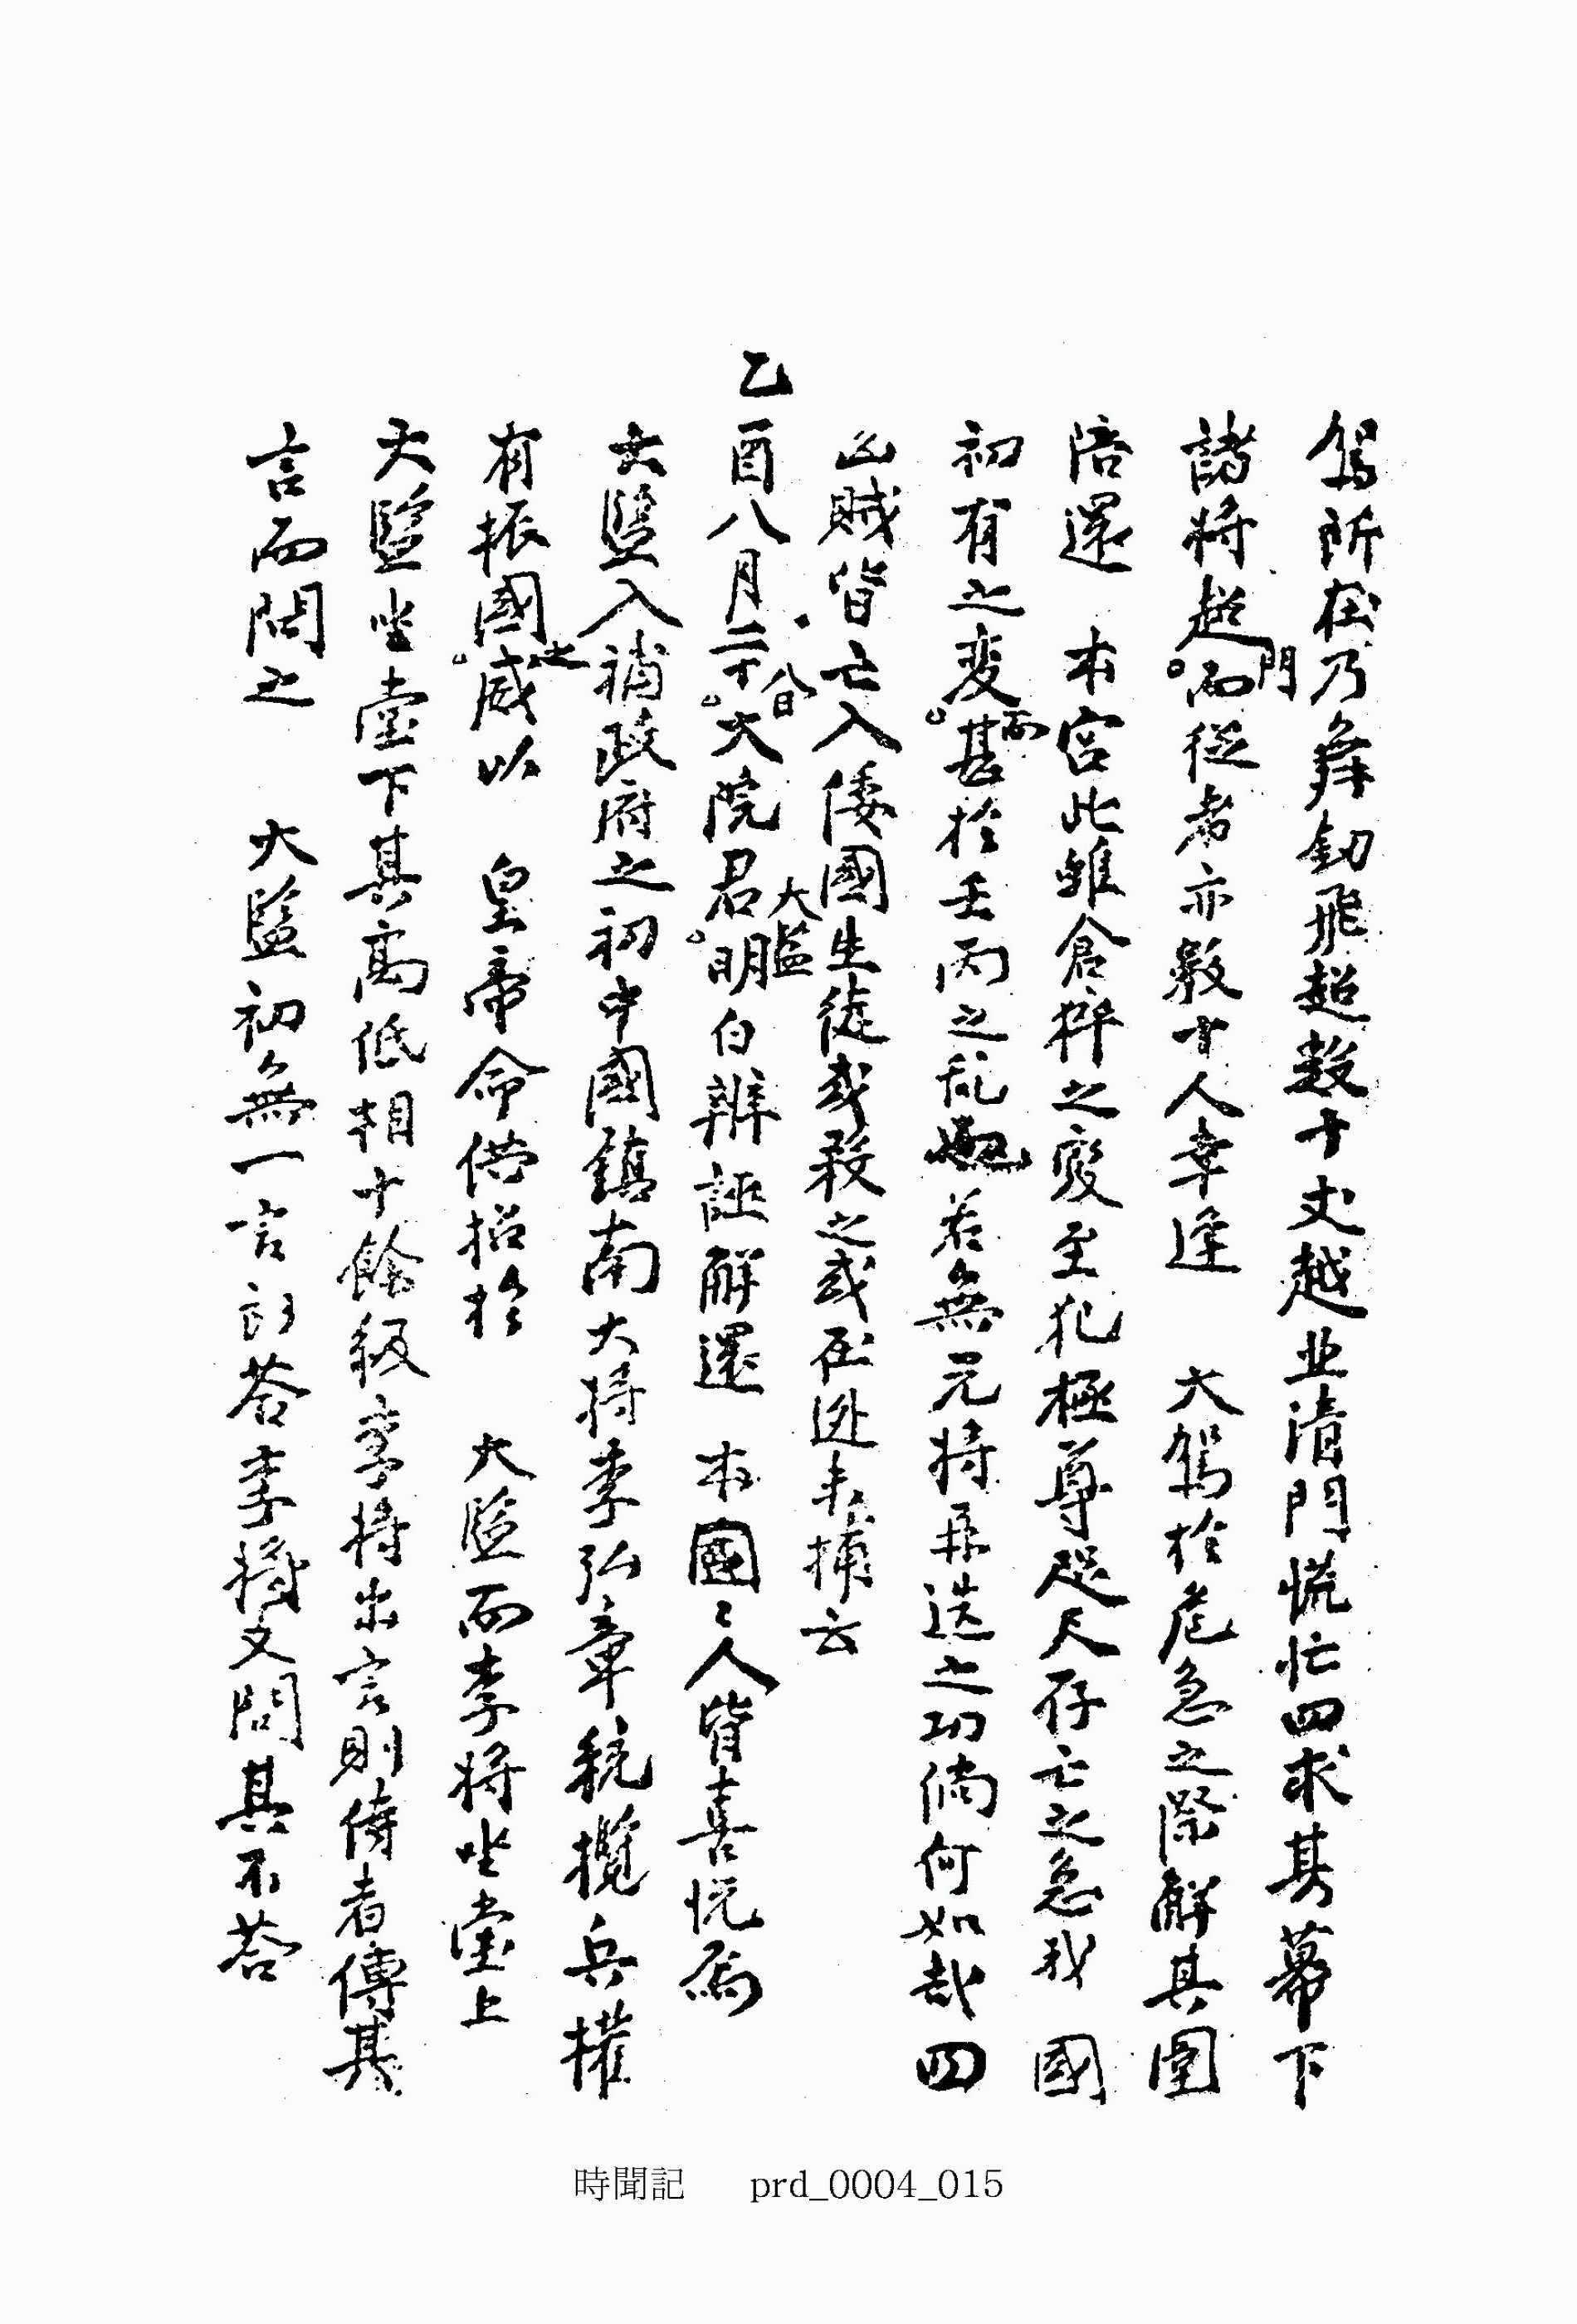 駕所在乃舞釰飛超数十丈越北淸門慌忙四求其幕下
諸將超門而從者亦數十人幸逢 大駕於危急之際解其圍
陪還 本宮此雖倉猝之變至犯極尊咫尺存亡之急我 國
初有之変而甚於壬丙之乱若無元將再迭之功倘何如哉四
凶賊皆亡入倭國生徒或殺之或在逃未捕云
乙酉八月二十八日大院君大監明白辨誣解還 本國〻人皆喜悅焉
大監入補政府之初中國鎮南大將李弘章統攬兵權
有振國之威以 皇帝命供招於 大監而李將坐堂上
大監坐堂下其高低相十餘級李將出言則侍者傳其
言而問之 大監初無一言討荅李將又問其不荅
時聞記 prd_0004_015